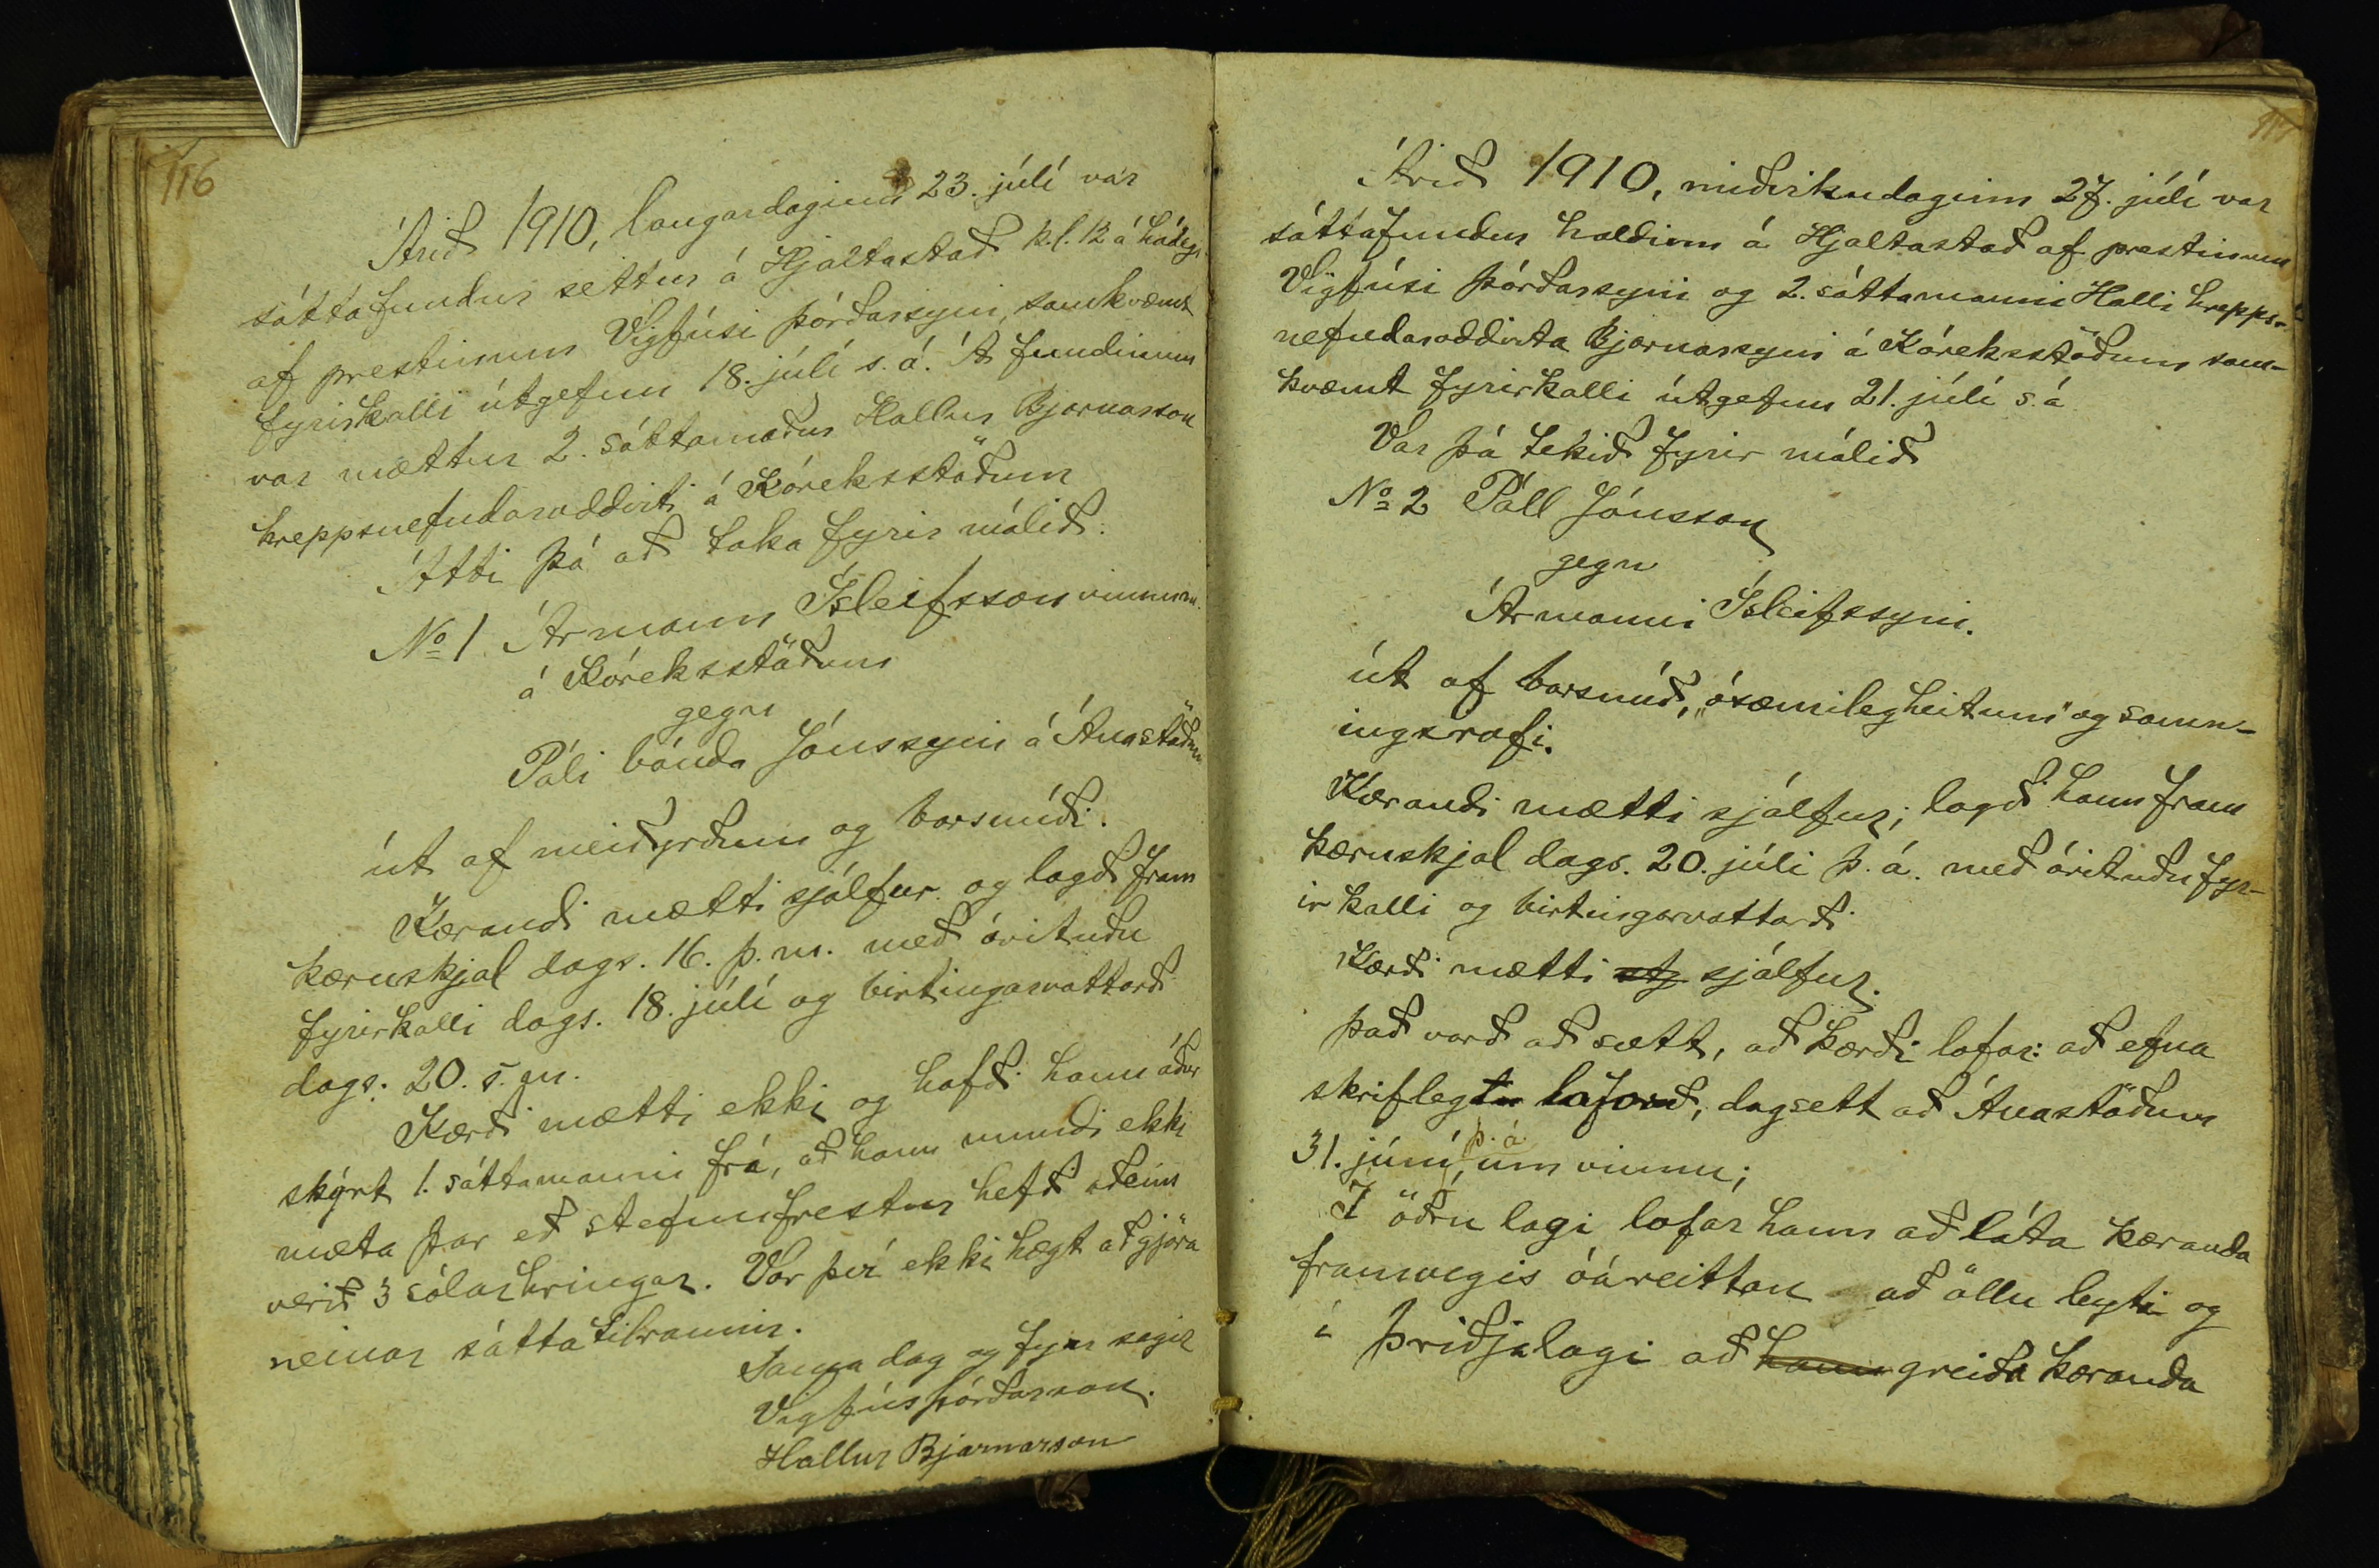 116
Árið 1910, laugardaginn 23. júlí var
sáttafundur settur á Hjaltastað k.l. 12 á hádegi
af prestinum Vigfúsi Þórðarsyni, samkvæmt
fyrirkalli útgefnu 18. júlí s.á. Á fundinum
var mættur 2. sáttamaður Hallur Bjarnarson
hreppsnefndaroddviti á Kóreksstöðum
Átti þá að taka fyrir málið:
No 1 Ármann Ísleifsson vinnum.
á Kóreksstöðum
gegn
Páli bónda Jónssyni á Ánastöðum
út af meiðyrðum og barsmíði.
Kærandi mætti sjálfur og lagði fram
kæruskjal dags. 16. þ.m. með árituðu
fyrirkalli dags. 18. júlí og birtingarvottorði
dags. 20. s.m.
Kærði mætti ekki og hafði hann áður
skýrt 1. sáttamanni frá, að hann mundi ekki
mæta þar eð stefnufrestur hefði aðeins
verið 3 sólarhringar. Var því ekki hægt að gjöra
neinar sáttatilraunir.
Samadag og fyr segir
Vigfús Þórðarson.
Hallur Bjarnarson
117
Árið 1910, miðvikudaginn 27. júlí var
sáttafundur haldinn á Hjaltastað af prestinum
Vigfúsi Þórðarsyni og 2. sáttamanni Halli hrepps-
nefndaroddvita Bjarnarsyni á Kóreksstöðum sam-
kvæmt fyrirkalli útgefnu 21. júlí s.á
Var þá tekið fyrir málið
No 2 Páll Jónsson
gegn
Ármanni Ísleifssyni.
út af barsmíð, "ósæmilegheitum" og samn-
ingsrofi.
Kærandi mætti sjálfur; lagði hann fram
kæruskjal dags. 20. júlí þ.á. með árituðu fyr-
irkalli og birtingarvottorði
Kærði mætti sjálfur.
Það varð að sætt, að kærði lofar: að efna
skriflegt loforð, dagsett að Ánastöðum
31. júní, þ.á. um vinnu;
Í öðru lagi lofar hann að láta kæranda
framvegis óáreittan að öllu leyti og
í þriðjalagi að hann greiða kæranda